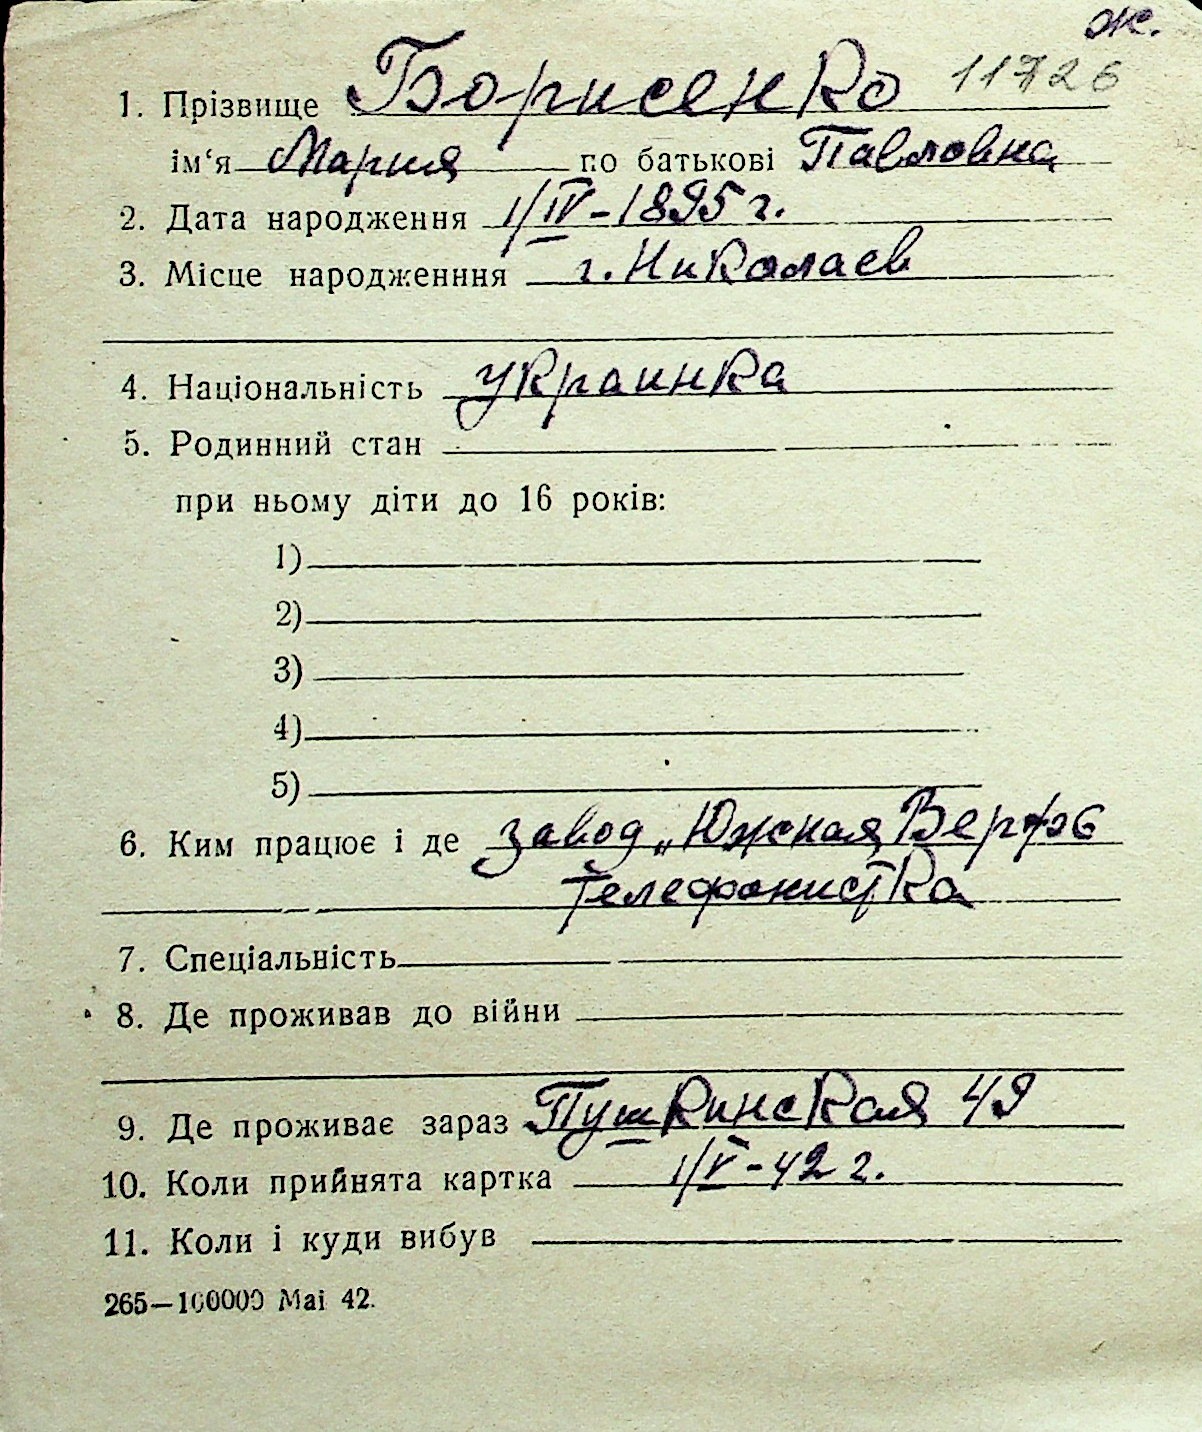 ж.
1. Прізвище Борисенко 11726
ім‘я Мария по батькові Павловна
2. Дата народження 1/IV-1895 г.
3. Місце народженння г. Николаев
4. Національність украинка
5. Родинний стан
при ньому діти до 16 років:
1)
2)
3)
4)
5)
6. Ким працює і де завод „Южная Верфь
телефонистка
7. Спеціальність
8. Де проживав до війни
9. Де проживає зараз Пушкинская 49
10. Коли прийнята картка 1/V-42 г.
11. Коли і куди вибув
265—100000 Маі 42.